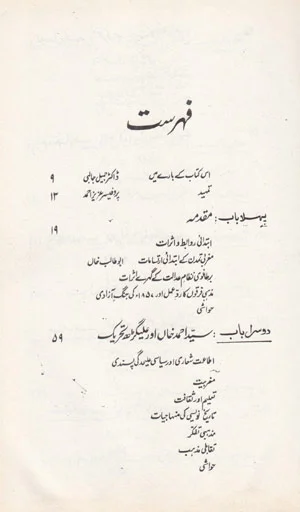 فہرست
اس کتاب کے بارے میں ڈاکٹر جمیل جالبی ۹
تمہید پروفیسر عزیز احمد ۱۳
پہلا باب : مقدمہ ۱۹
ابتدائی روابط و اثرات
مغربی تمدن کے ابتدائی ارتسامات ابو طالب خاں
برطانوی نظام عدالت کے گہرے اثرات
مذہبی فرقوں کا ردِ عمل اور ۱۸۵۷ء کی جنگ آزادی
حواشی
دوسرا باب : سید احمد خاں اور علیگڑھ تحریک ۵۹
اطاعت شعاری اور سیاسی علیحدگی پسندی
مغربیت
تعلیم اور ثقافت
تاریخ نویسی کی منہاجیات
مذہبی تفکر
تقابلی مذہب
حواشی